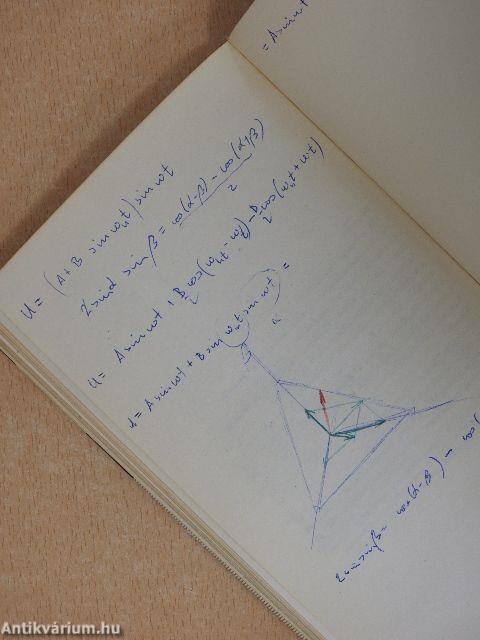 = A sin ωt
u = (A + B sin ωₙt) sin ωt
2 sinα sinβ = cos(α-β) - cos(α+β) / 2
u = A sin ωt + B/2 cos(ωₙt - ωt) - B/2 cos(ωₙt + ωt)
u = A sin ωt + B sin ωₙt sin ωt =
cos(α-β) - cos(
Antikvárium.hu